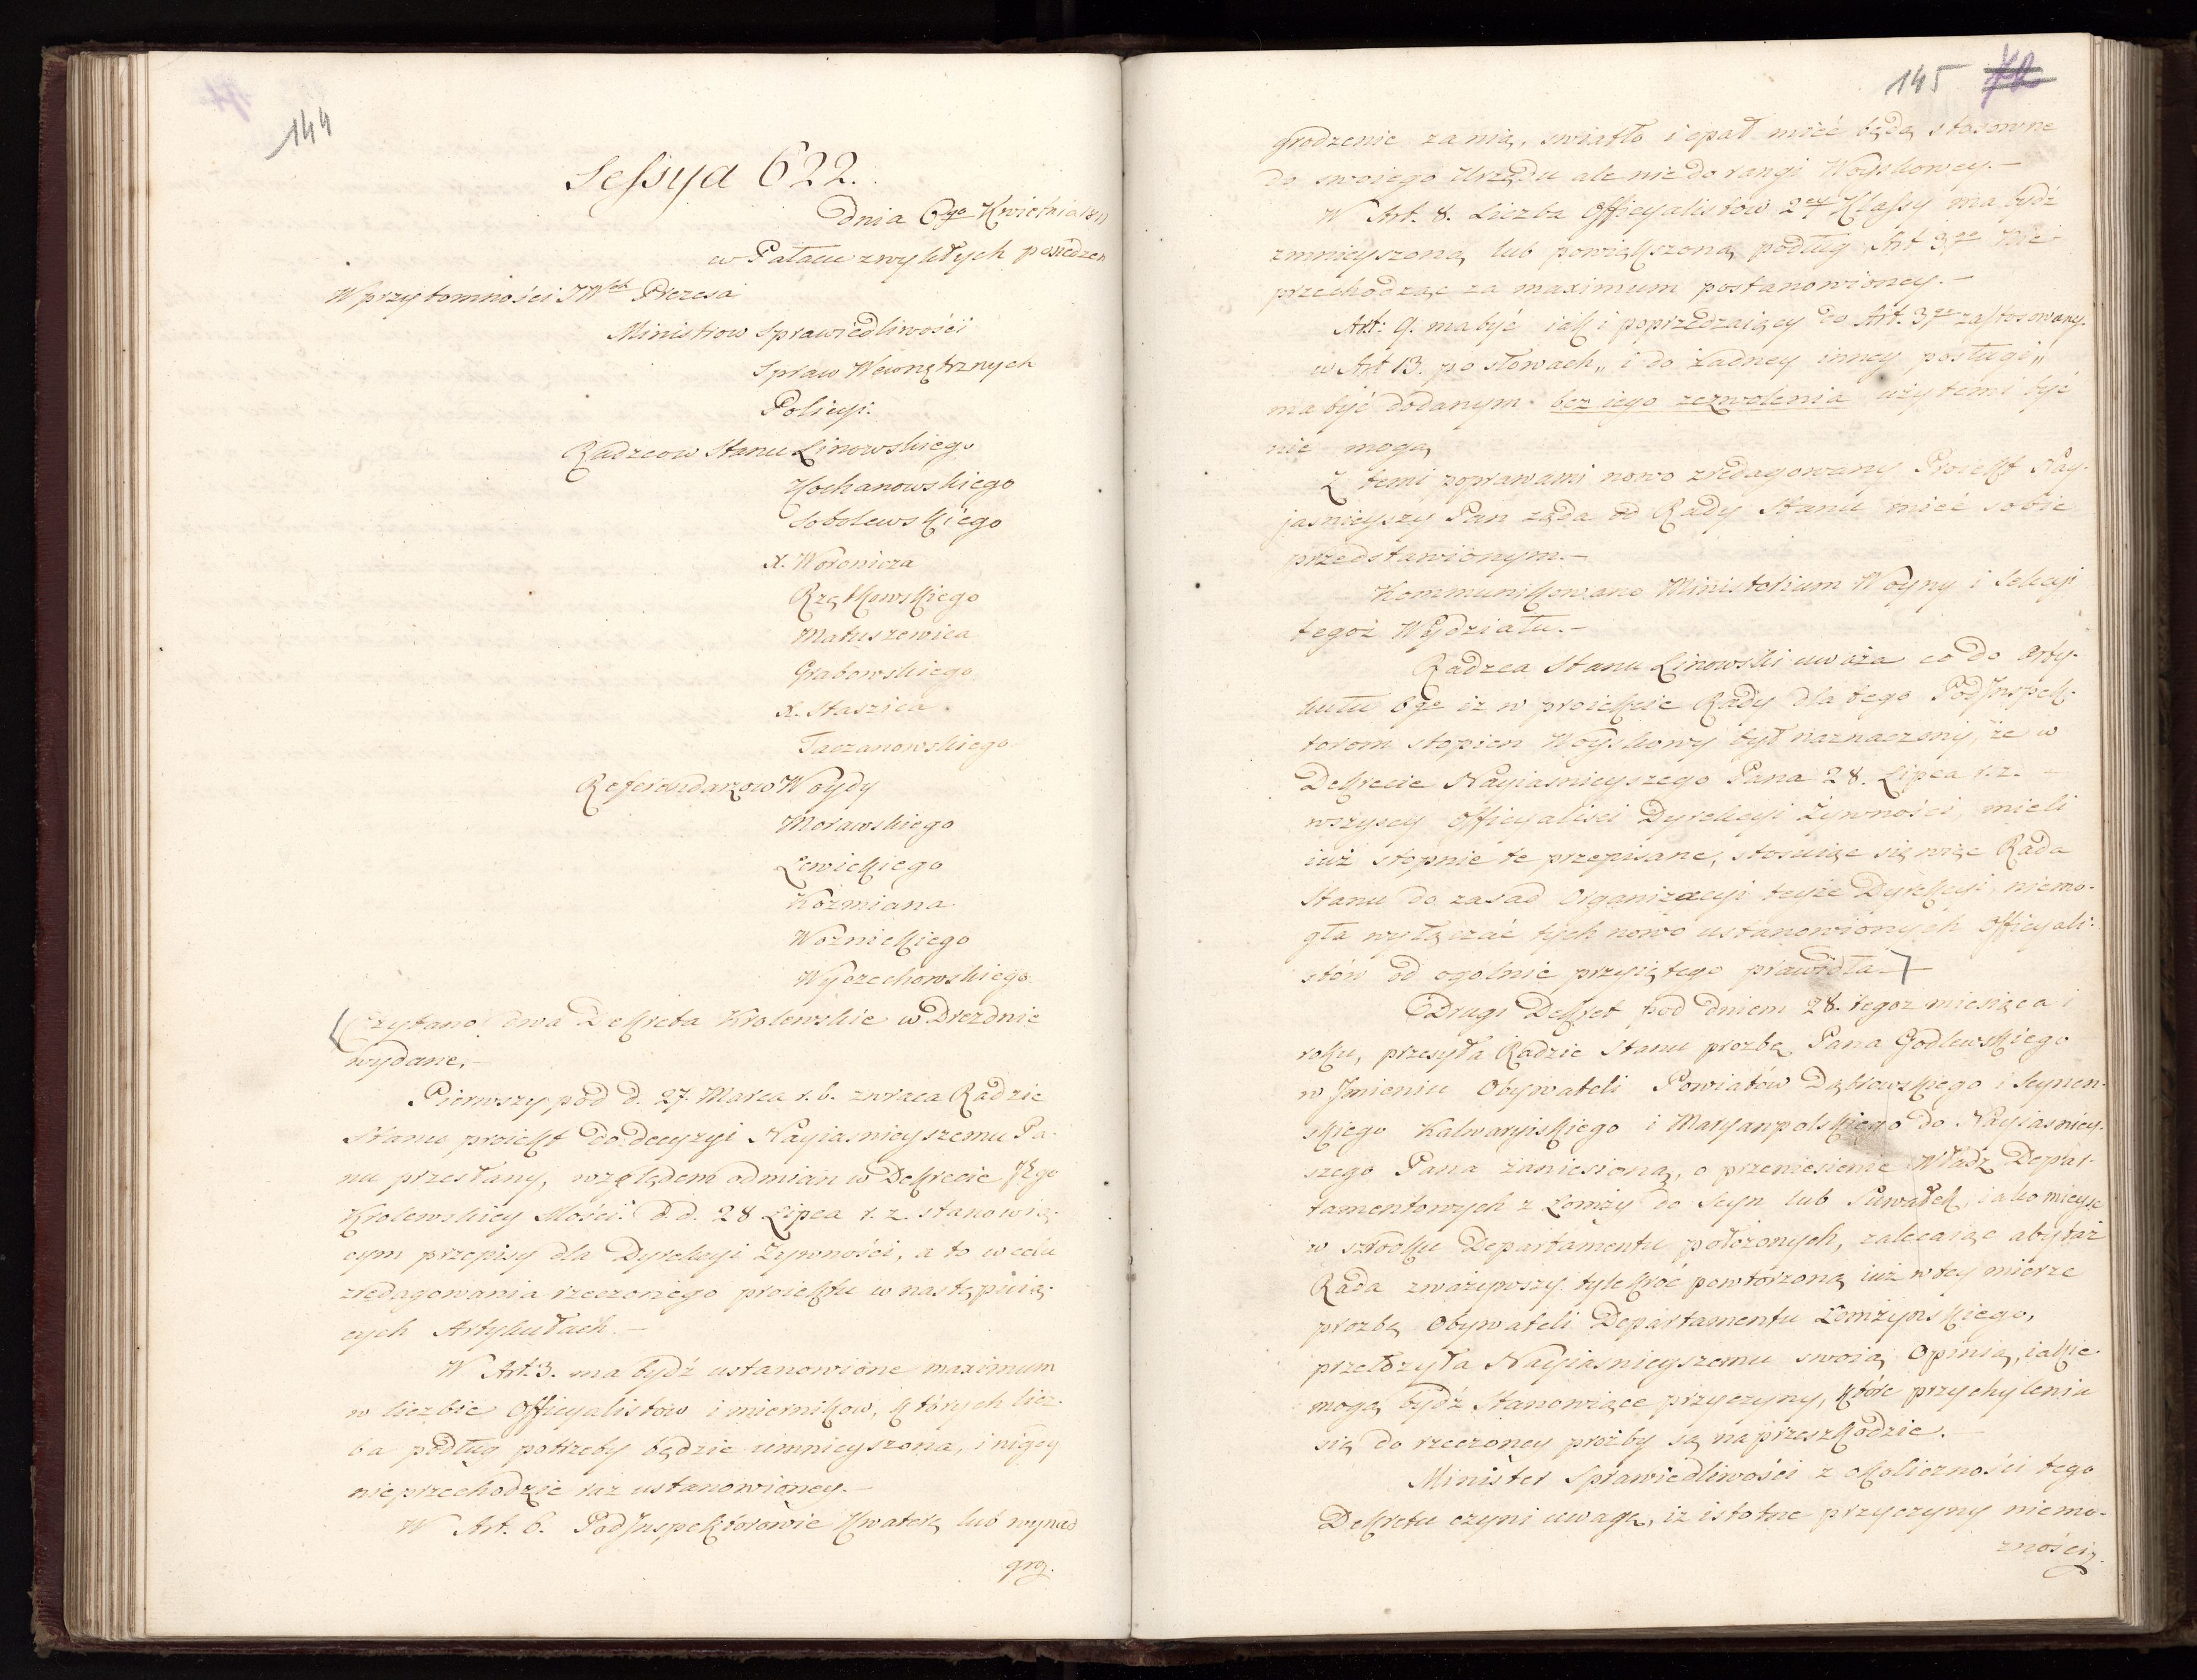 144
Sessya 622.
Dnia 6go Kwietnia 1811
w Pałacu zwykłych posiedzeń
W przytomności JW Prezesa
Ministrow Sprawiedliwości
Spraw Wewnętrznych
Policyi.
Radzcow Stanu Linowskiego
Kochanowskiego
Sobolewskiego
X. Woronicza
Rzętkowskiego
Matuszewica
Grabowskiego
X. Staszica
Taczanowskiego
Referendarzow Woydy
Morawskiego
Lewickiego
Kozmiana
Woznickiego
Wyczechowskiego
Czytano dwa Dekreta Krolewskie w Dreznie
wydane.-
Pierwszy pod d. 27. Marca r. b. zwraca Radzie
Stanu proiekt do decyzyi Nayiasnieyszemu Pa-
nu przesłany, względem odmian w Dekrecie JKgo
Krolewskiey Mości d. d. 28 Lipca r. z. stanowią-
cym przepisy dla Dyrekcyi Żywności, a to w celu
zredagowania rzeczonego proiektu w następuią-
cych Artykułach.-
W Art. 3. ma bydź ustanowione maximum
w liczbie Officyalistow i miernikow, których licz-
ba podług potrzeby będzie umnieyszona, i nigdy
nieprzechodzić raz ustanowioney.-
W Art. 6. PodInspektorowie Kwaterę lub wynad
grq.
145
grodzenie za nią, swiatło i opał mieć będą stosowne
do swoiego Urzędu ale nie do rangi Woyskowey.-
W Art. 8. Liczba Officyalistow 2ey Klassy ma bydź
zmnieyszoną lub powiększoną podług Art 3go nie
przechodząc za maximum postanowioney.-
Art: 9. ma być iak i poprzedzaiący do Art. 3go zastosowany.
w Art 13. po słowach „i do żadney inney posługi„
ma być dodanym bez iego zezwolenia użytemi być
nie mogą
Z temi poprawami nowo zredagowany Proiekt Nay-
jasnieyszy Pan żąda od Rady Stanu mieć sobie
przedstawionym.-
Kommunikowano Ministerium Woyny i Sekcyi
tegoż Wydziału.-
Radzca Stanu Linowski uważa co do Arty-
kułu 6go iz w proiekcie Rady dla tego PodInspek-
torom stopien Woyskowy był naznaczony, że w
Dekrecie Nayiasnieyszego Pana 28. Lipca r. z.
wszyscy Officyalisci Dyrekcyi Żywności, mieli
iuż stopnie te przepisane, stosuiąc się więc Rada
Stanu do zasad Organizacyi teyże Dyrekcyi, niemo-
gła wyłączać tych nowo ustanowionych Officyali-
stów od ogolnie przyiętego prawidła.-
Drugi Dekret pod dniem 28. tegoz miesiąca i
roku, przesyła Radzie Stanu prozbę Pana Godlewskiego
w Jmieniu Obywateli Powiatów Dąbrowskiego i Seynen-
skiego Kalwaryiskiego i Maryanpolskiego do Nayiasniey-
szego Pana zaniesioną, o przeniesienie Władz Depar-
tamentowych z Łomży do Seyn lub Suwałek, iako mieysc
w szrodku Departamentu położonych, zalecaiąc aby taż
Rada zważywszy tylekroć powtórzoną iuż w tey mierze
prozbę Obywateli Departamentu Łomżynskiego,
przełożyła Nayiasnieyszemu swoią Opinią, iakie
mogą bydź Stanowiące przyczyny, które przychyleniu
się do rzeczoney prozby są na przeszkodzie.-
Minister Sprawiedliwości z okoliczności tego
Dekretu czyni uwagę, iz istotne przyczyny niemo-
zności